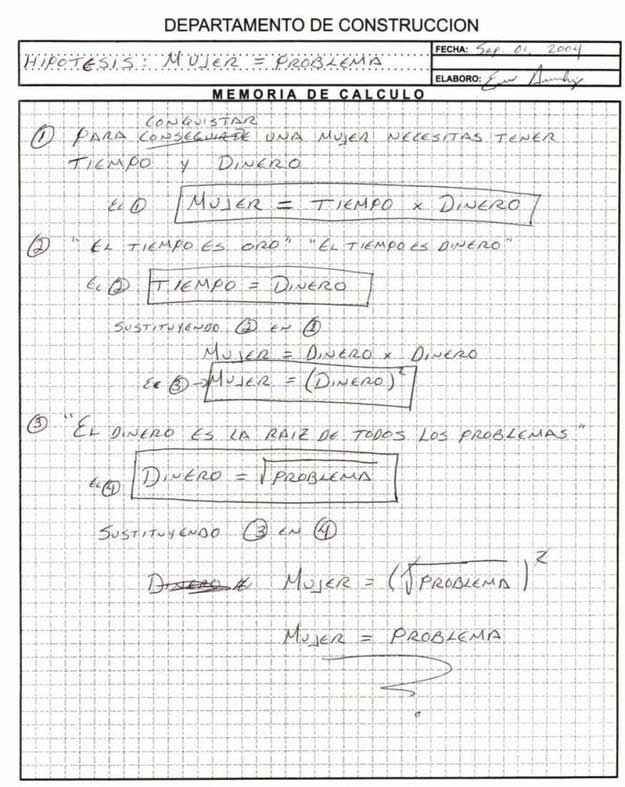 DEPARTAMENTO DE CONSTRUCCION
HIPOTESIS: MUJER = PROBLEMA
FECHA: Sep. 01, 2004
ELABORO:
MEMORIA DE CALCULO
CONQUISTAR
① PARA UNA MUJER NECESITAS TENER
TIEMPO Y DINERO
EC ① MUJER = TIEMPO x DINERO
② "EL TIEMPO ES ORO" "EL TIEMPO ES DINERO"
EC ② TIEMPO = DINERO
SUSTITUYENDO ② EN ①
MUJER = DINERO x DINERO
EC ③ → MUJER = (DINERO)²
③ "EL DINERO ES LA RAIZ DE TODOS LOS PROBLEMAS"
EC ④ DINERO = √PROBLEMA
SUSTITUYENDO ③ EN ④
DINERO MUJER = (√PROBLEMA)²
MUJER = PROBLEMA